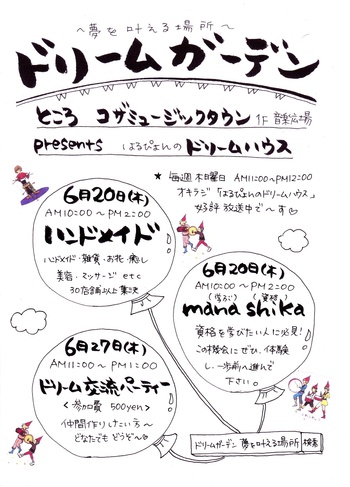 ～夢を叶える場所～
ドリームガーデン
ところ コザミュージックタウン 1F 音楽広場
presents はるぴょんの ドリームハウス
★ 毎週木曜日 AM11:00～PM12:00
オキラジ「はるぴょんのドリームハウス」
好評放送中で～す♡
6月20日(木)
AM10:00～PM2:00
ハンドメイド
ハンドメイド・雑貨・お花・癒し
美容・マッサージ etc
30店舗以上集決
6月20日(木)
AM10:00～PM2:00
(学ぶ) (資格)
mana shika
資格を学びたい人に必見!
この機会にぜひ、体験
し、一歩前へ進んで
下さい。
6月27日(木)
AM11:00～PM1:00
ドリーム交流パーティー
<参加費 500yen>
仲間作りしたい方～
どなたでもどうぞ～♡
ドリームガーデン 夢を叶える場所 検索